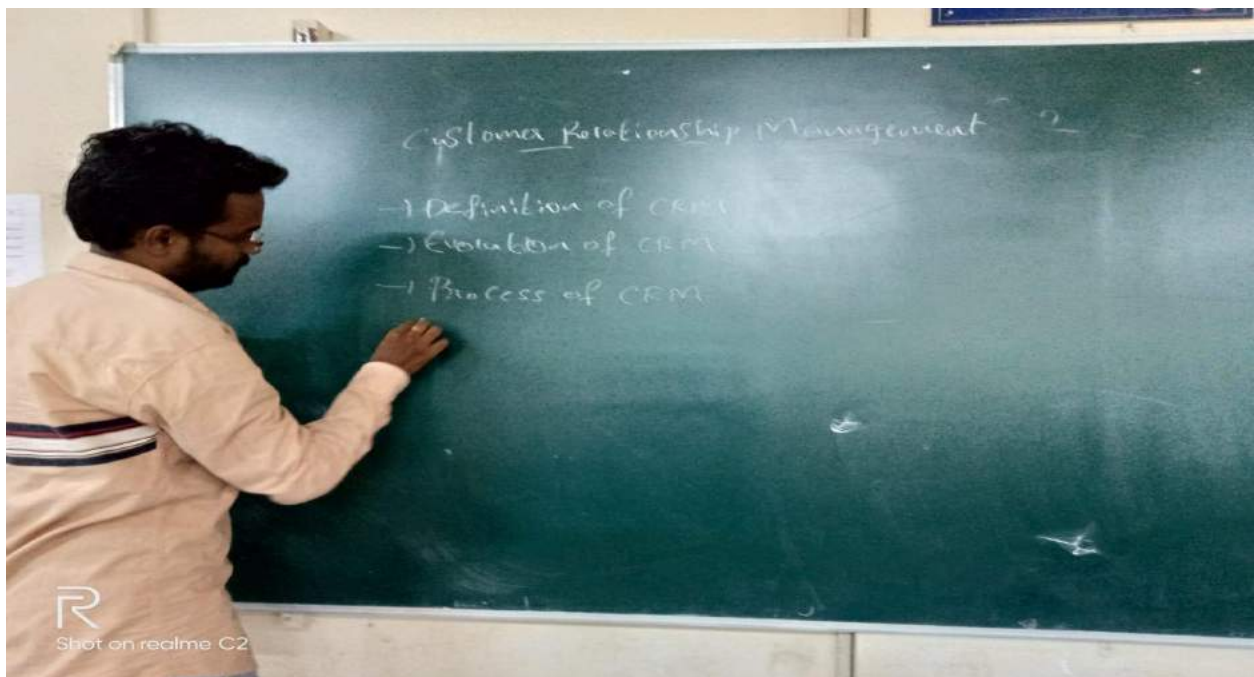 Customer Relationship Management
→ Definition of CRM
→ Evolution of CRM
→ Process of CRM
R
Shot on realme C2